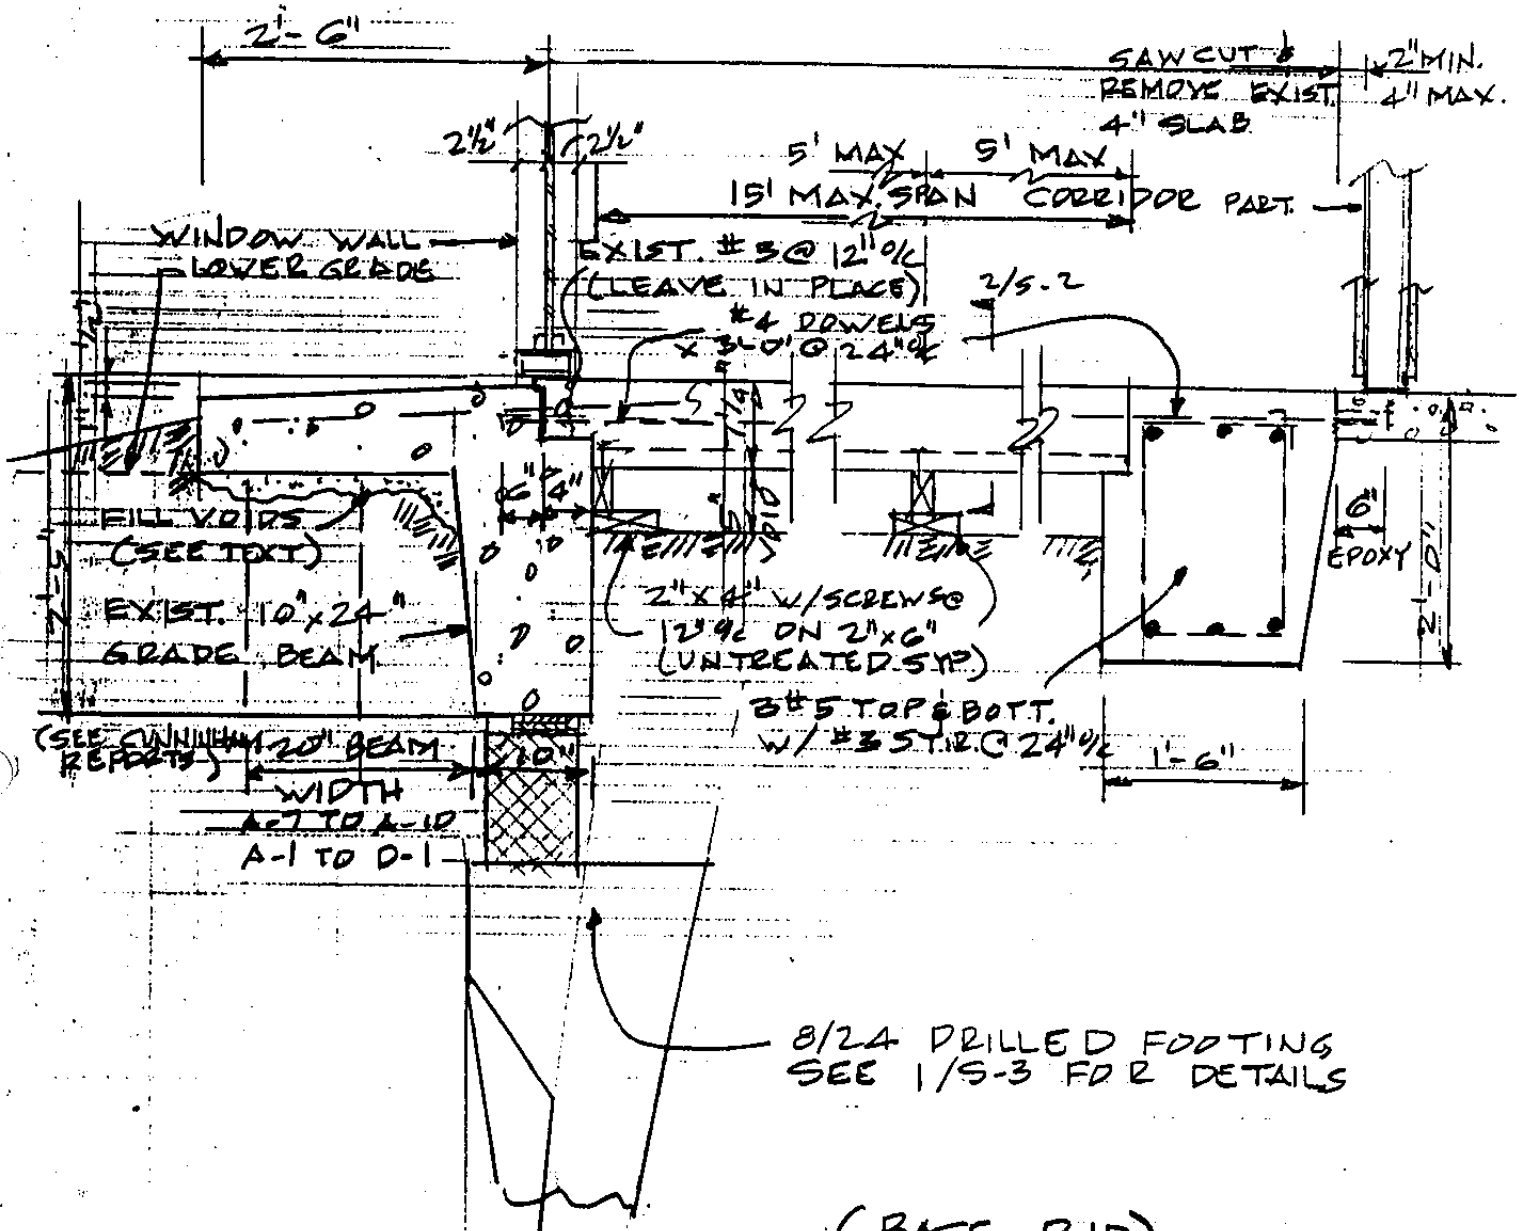 2'-6"
SAWCUT &
REMOVE EXIST.
4" SLAB
2" MIN.
4" MAX.
2½" 2½"
5' MAX 5' MAX
15' MAX. SPAN
CORRIDOR PART.
WINDOW WALL
LOWER GRADE
EXIST. #3 @ 12" o/c
(LEAVE IN PLACE)
2/S-2
#4 DOWELS
x 3'-0" @ 24" o/c
6" 4"
FILL VOIDS
(SEE TEXT)
2'-5"
EXIST. 10"x24"
GRADE BEAM
2"x4" W/SCREWS @
12" o/c ON 2"x6"
(UNTREATED SYP)
6"
EPOXY
2'-0"
3 #5 TOP & BOTT.
W/ #3 STIR. @ 24" o/c
1'-6"
(SEE CUNNINGHAM
REPORTS)
20" BEAM
WIDTH
A-7 TO A-10
A-1 TO D-1
10"
8/24 DRILLED FOOTING
SEE 1/S-3 FOR DETAILS
(BASE BID)